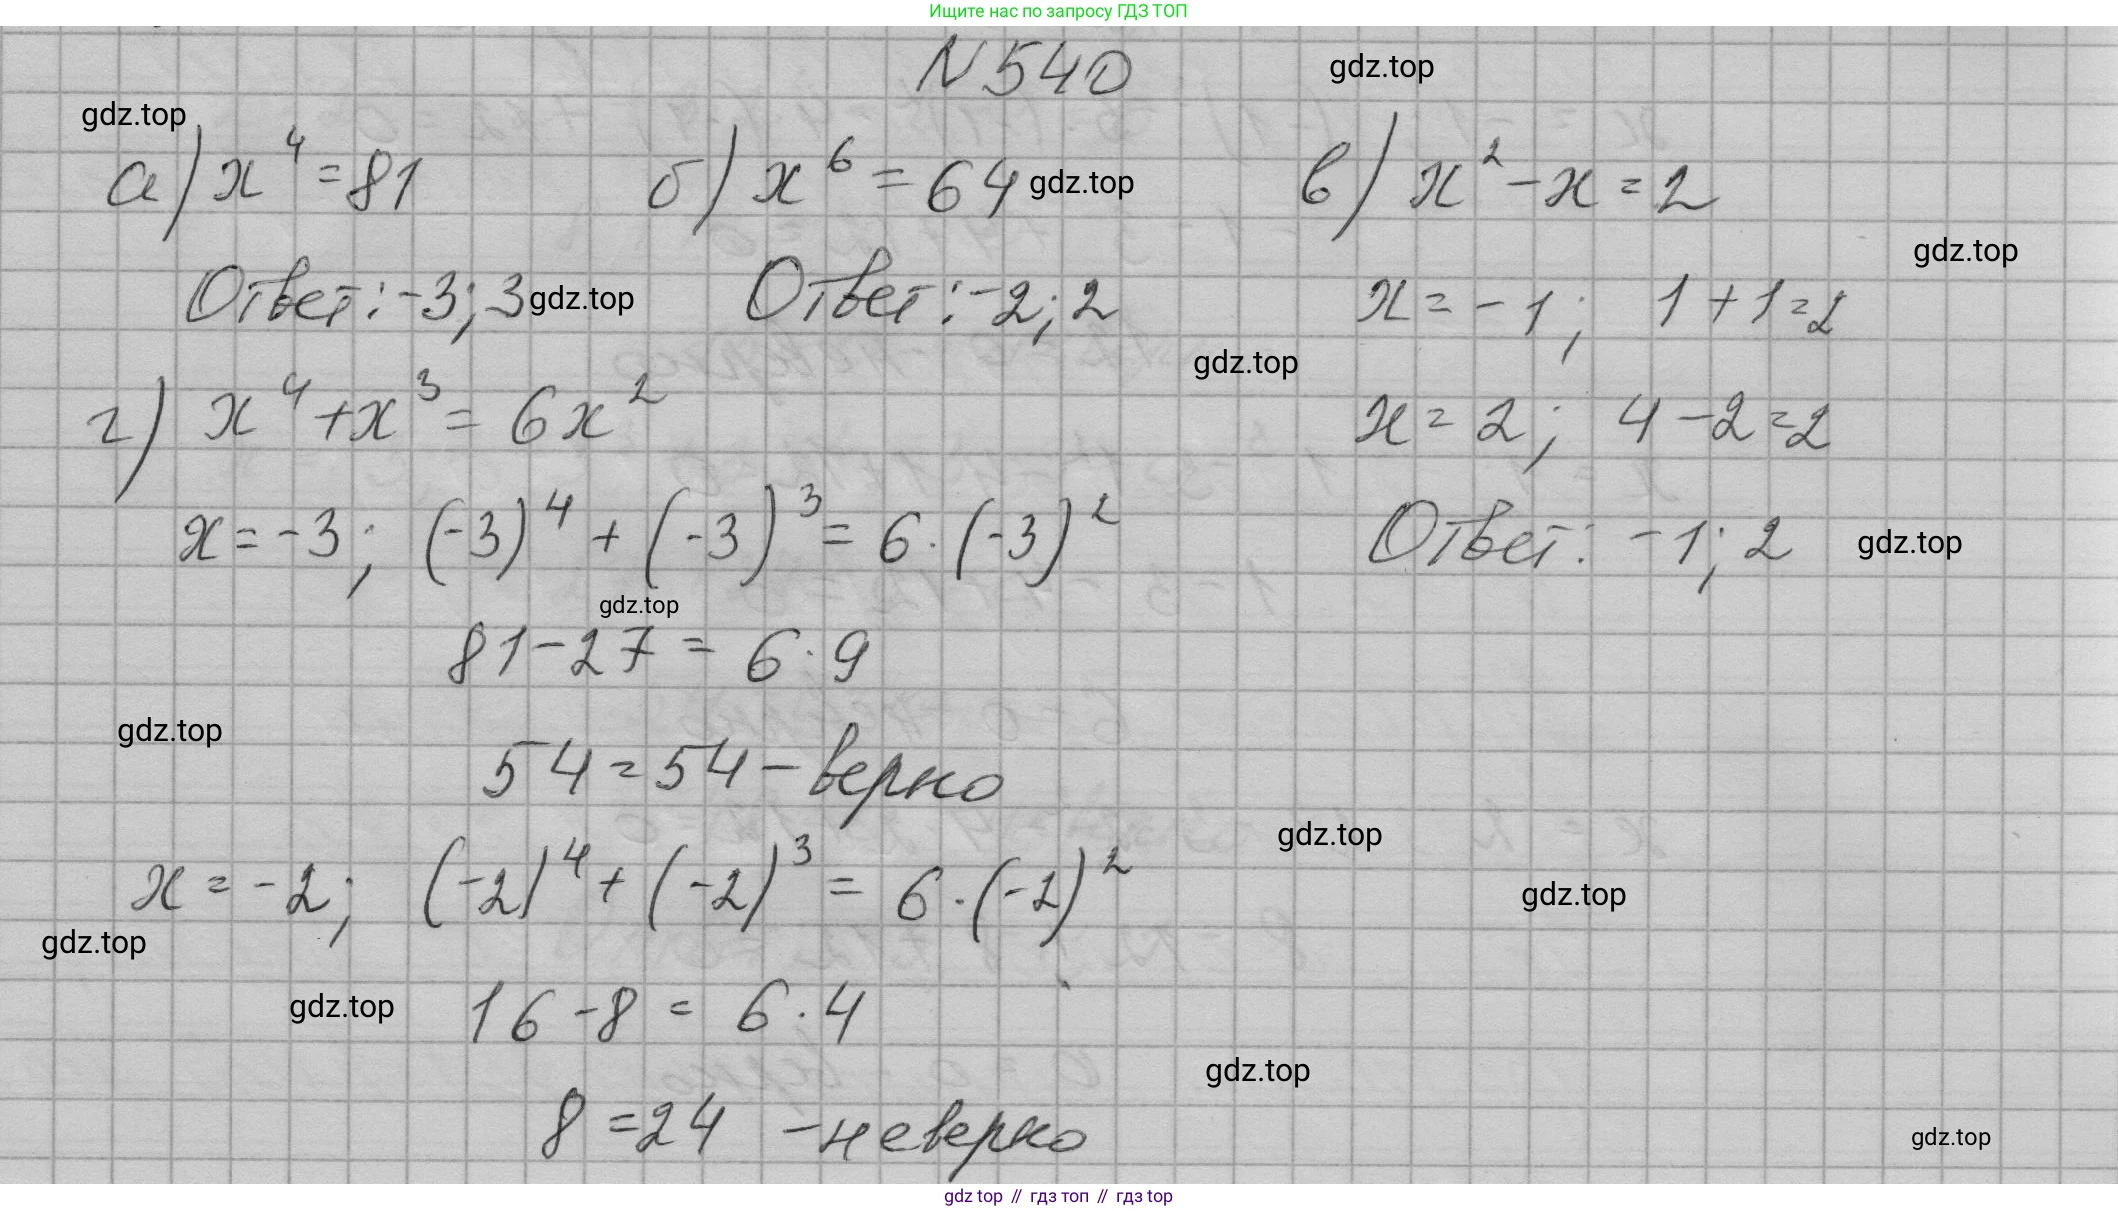 Ищите нас по запросу ГДЗ ТОП
N 540
gdz.top
gdz.top
а) x⁴ = 81
б) x⁶ = 64 gdz.top
в) x² - x = 2
gdz.top
Ответ: -3; 3 gdz.top
Ответ: -2; 2
x = -1; 1 + 1 = 2
gdz.top
г) x⁴ + x³ = 6x²
x = 2; 4 - 2 = 2
x = -3; (-3)⁴ + (-3)³ = 6 · (-3)²
Ответ: -1; 2 gdz.top
gdz.top
81 - 27 = 6 · 9
gdz.top
54 = 54 - верно
gdz.top
x = -2; (-2)⁴ + (-2)³ = 6 · (-2)²
gdz.top
gdz.top
gdz.top
16 - 8 = 6 · 4
gdz.top
8 = 24 - неверно
gdz.top
gdz top // гдз топ // гдз top